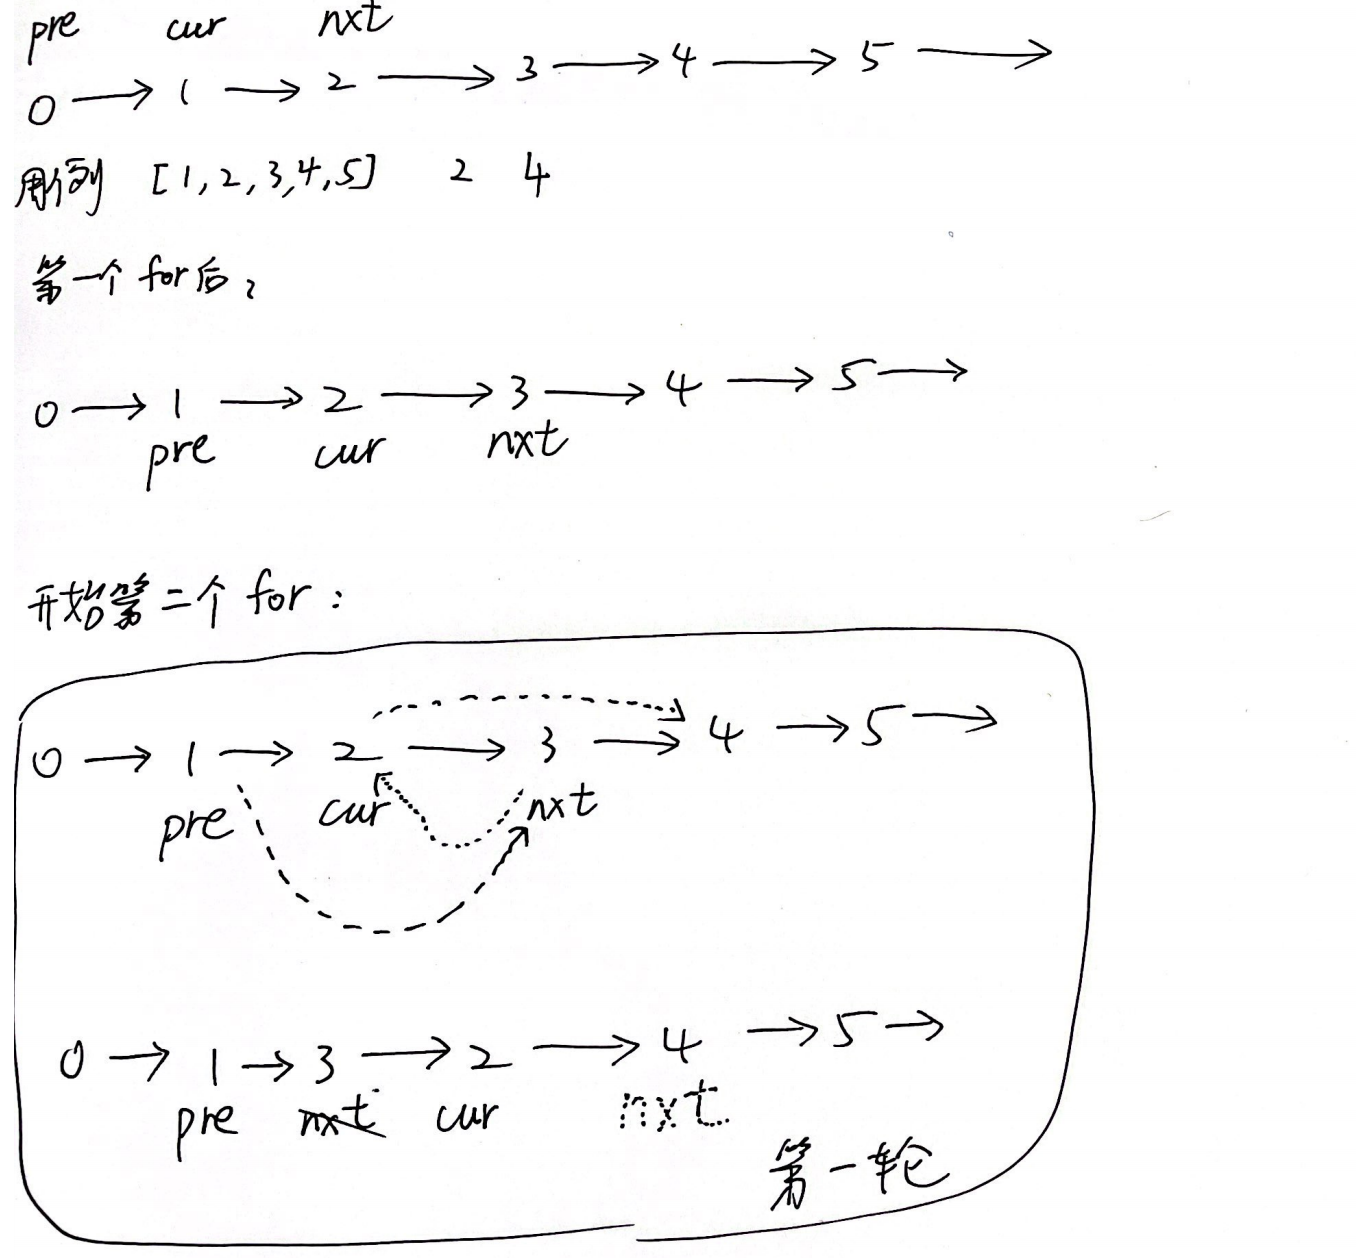 pre cur nxt
0 → 1 → 2 → 3 → 4 → 5 →
用例 [1,2,3,4,5] 2 4
第一个 for后：
0 → 1 → 2 → 3 → 4 → 5 →
pre cur nxt
开始第二个 for：
0 → 1 → 2 → 3 → 4 → 5 →
pre cur nxt
0 → 1 → 3 → 2 → 4 → 5 →
pre nxt cur nxt
第一轮